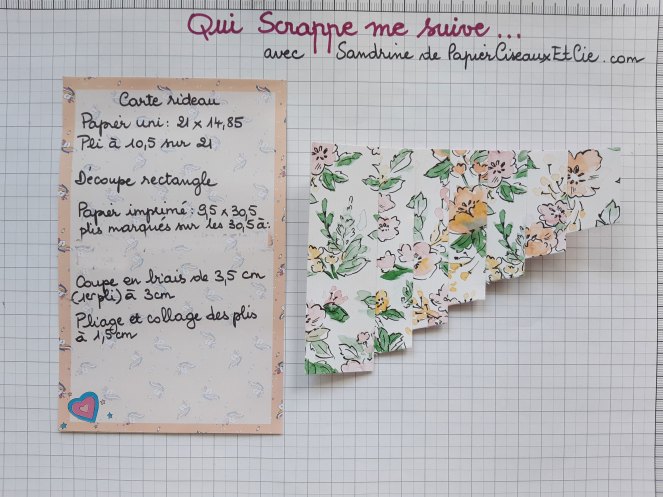 Qui Scrappe me suive...
avec Sandrine de PapierCiseauxEtCie.com
Carte rideau
Papier uni : 21 x 14,85
Pli à 10,5 sur 21
Découpe rectangle
Papier imprimé : 9,5 x 30,5
plis marqués sur les 30,5 à :
Coupe en biais de 3,5 cm
(1er pli) à 3cm
Pliage et collage des plis
à 1,5cm